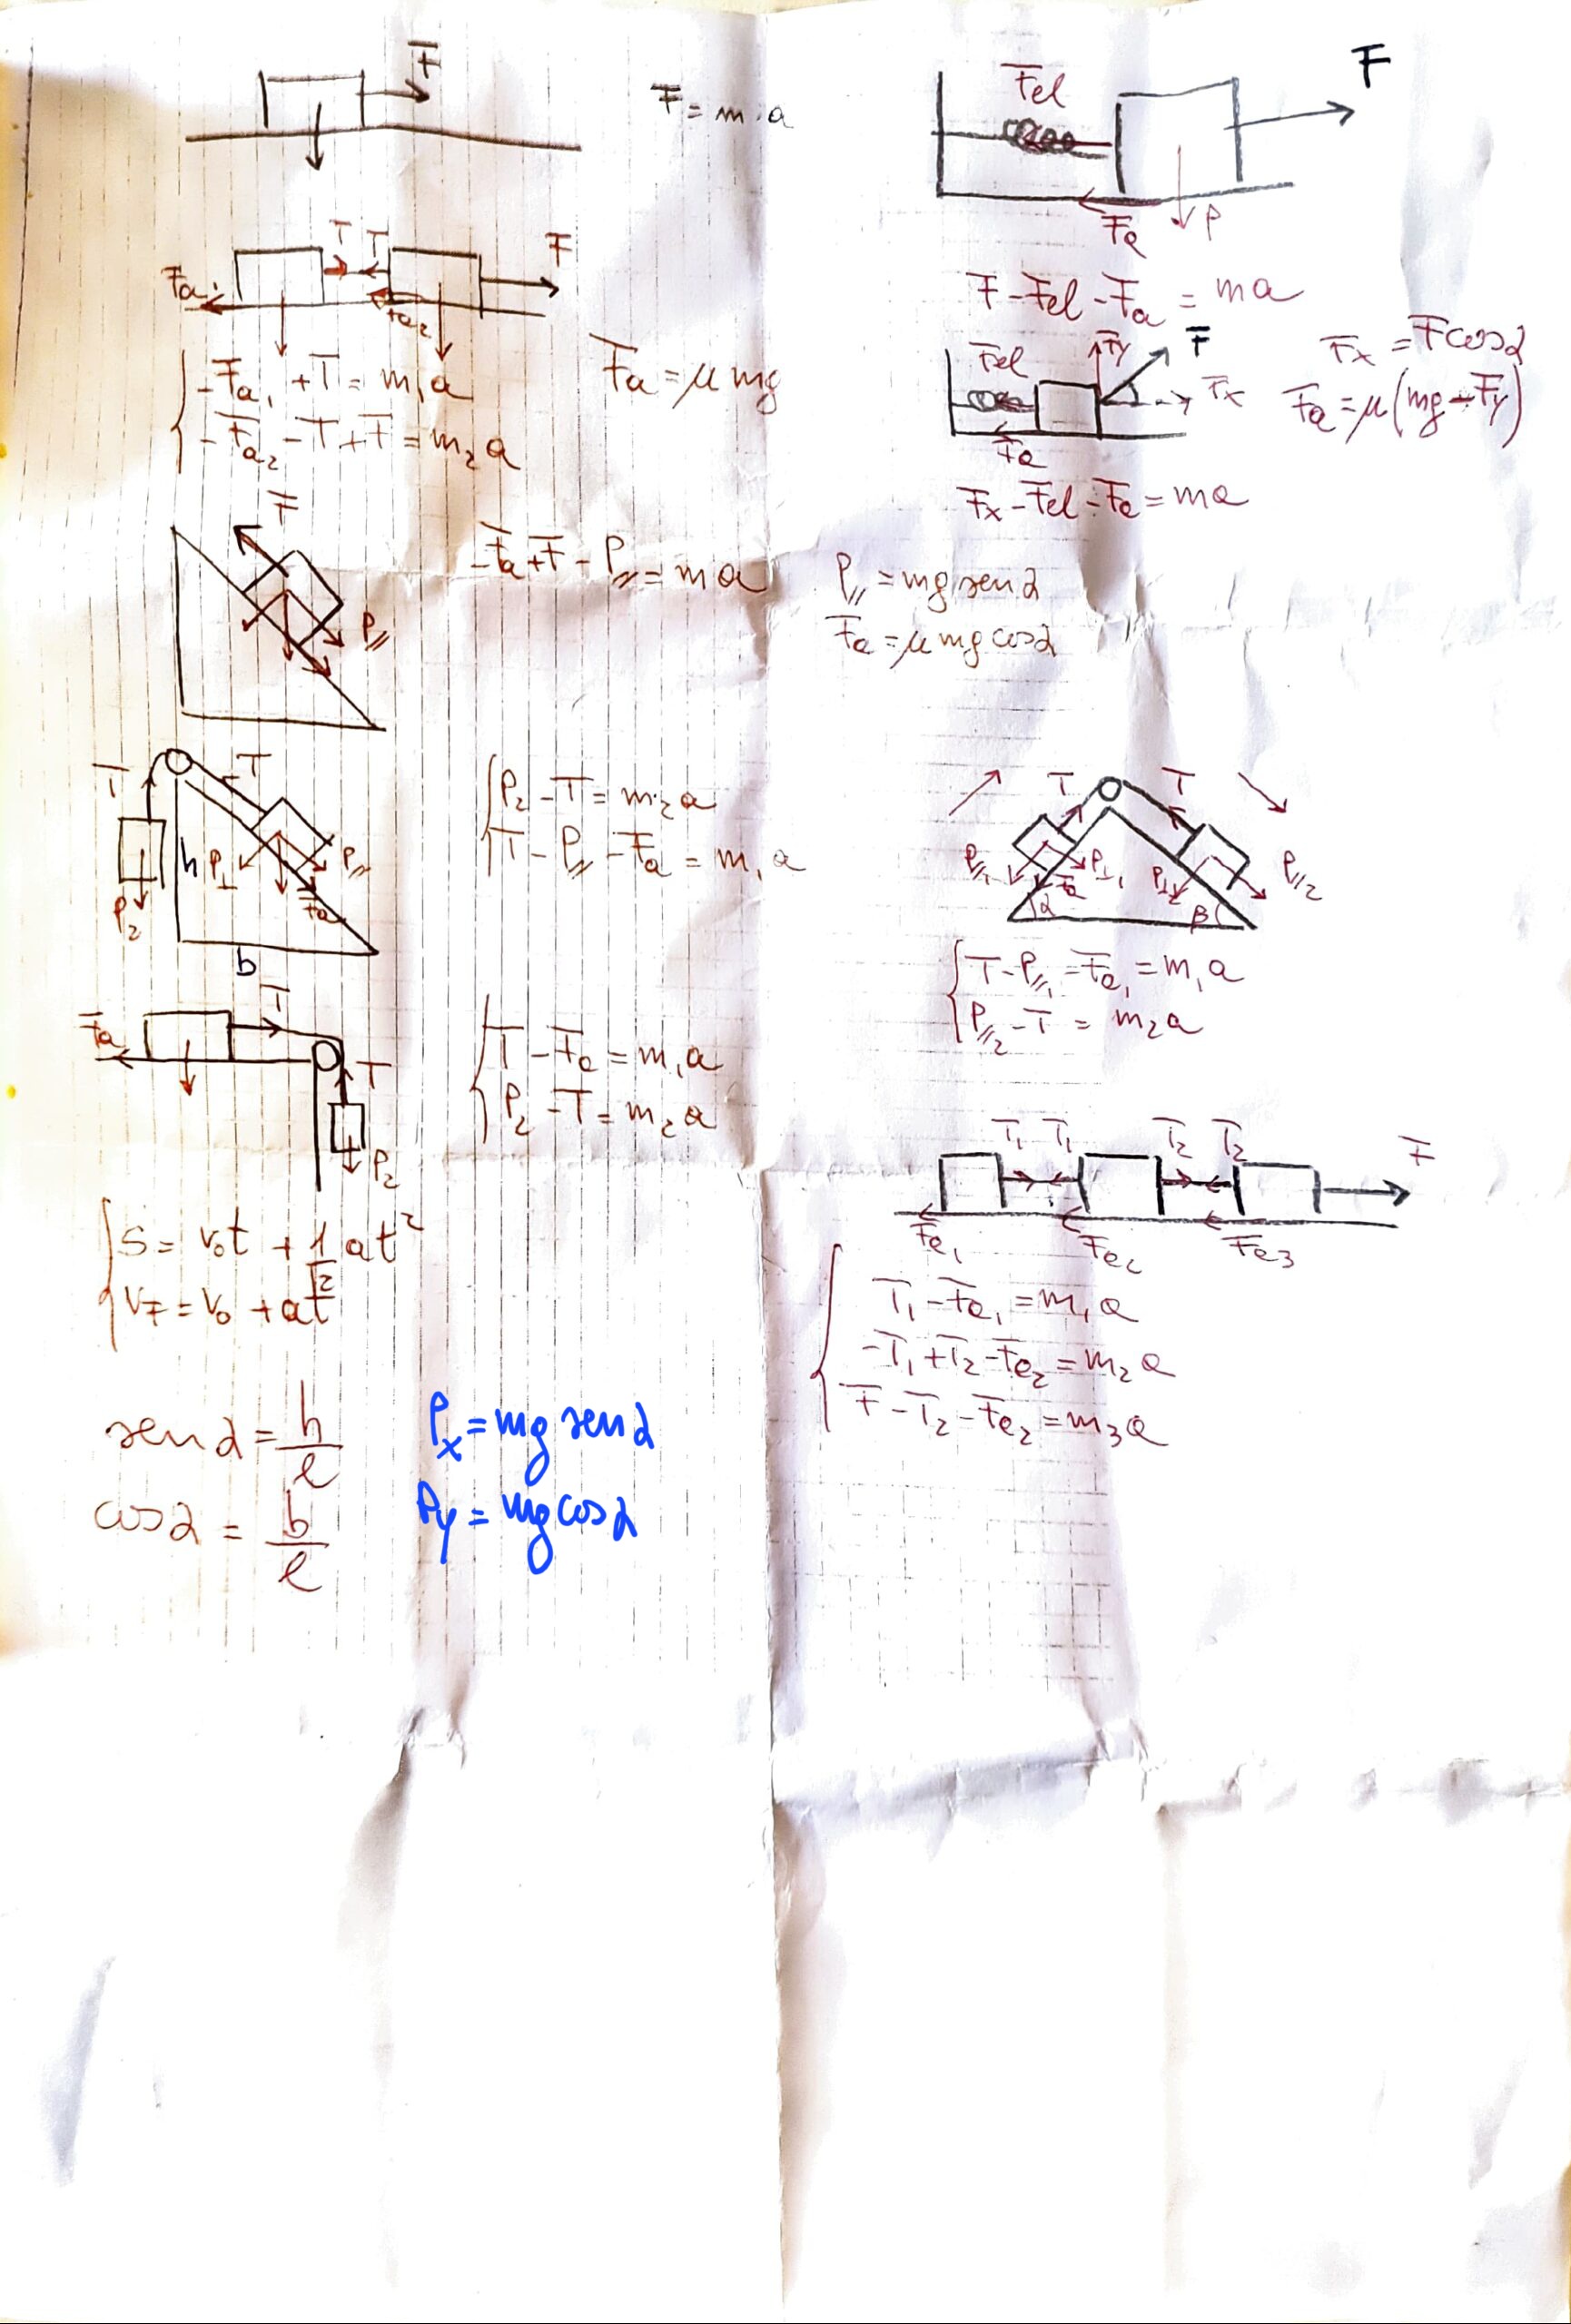 F
F = m·a
T T F
Fa₁ Fa₂
-Fa₁ + T = m₁a
-Fa₂ - T + F = m₂a
Fa = μmg
F
P//
-Fa + F - P// = ma
P// = mg sen α
Fa = μmg cos α
T T
h P⊥ P//
P₂ Fa
b
P₂ - T = m₂a
T - P// - Fa = m₁a
Fa T
T
P₂
T - Fa = m₁a
P₂ - T = m₂a
S = v₀t + 1/2 at²
VF = v₀ + at
sen α = h/l
cos α = b/l
Px = mg sen α
Py = mg cos α
Fel F
Fa P
F - Fel - Fa = ma
Fel Fy F
Fx
Fa
Fx = F cos α
Fa = μ(mg - Fy)
Fx - Fel - Fa = ma
T T
P//₁ P⊥₁ P⊥ P//₂
Fa
α β
T - P//₁ - Fa₁ = m₁a
P//₂ - T = m₂a
T₁ T₁ T₂ T₂ F
Fa₁ Fa₂ Fa₃
T₁ - Fa₁ = m₁a
-T₁ + T₂ - Fa₂ = m₂a
F - T₂ - Fa₂ = m₃a